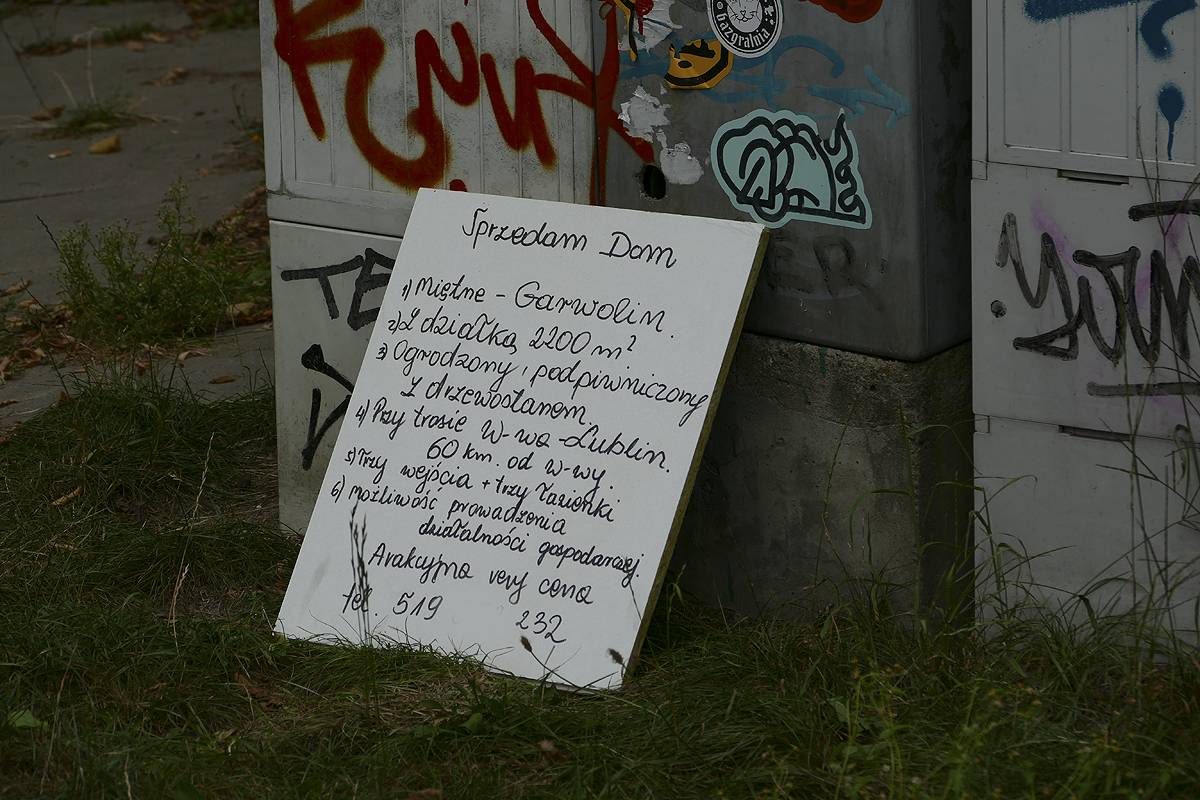 bazgralnia
TE
ER
Sprzedam Dom
1) Miętne - Garwolin.
2) Z działką 2200 m²
3) Ogrodzony, podpiwniczony
z drzewostanem
4) Przy trasie W-wa - Lublin.
60 km. od W-wy.
5) Trzy wejścia + trzy łazienki
6) Możliwość prowadzenia
działalności gospodarczej.
Atrakcyjna very cena
tel. 519 232